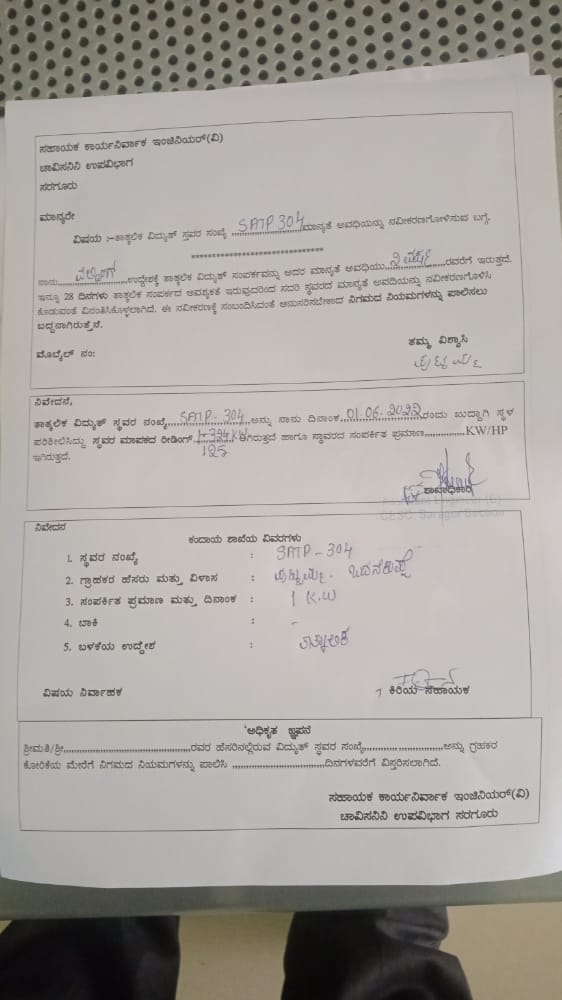 ಸಹಾಯಕ ಕಾರ್ಯನಿರ್ವಾಕ ಇಂಜಿನಿಯರ್(ವಿ)
ಚಾವಿಸನಿನಿ ಉಪವಿಭಾಗ
ಸರಗೂರು
ಮಾನ್ಯರೇ
ವಿಷಯ :-ತಾತ್ಕಲಿಕ ವಿದ್ಯುತ್ ಸ್ತವರ ಸಂಖ್ಯೆ SATP 304 ಮಾನ್ಯತೆ ಅವಧಿಯನ್ನು ನವೀಕರಣಗೋಳಿಸುವ ಬಗ್ಗೆ.
******************************
ನಾನು ಉದ್ದೇಶಕ್ಕೆ ತಾತ್ಕಲಿಕ ವಿದ್ಯುತ್ ಸಂಪರ್ಕವನ್ನು ಅದರ ಮಾನ್ಯತೆ ಅವಧಿಯು ರವರೆಗೆ ಇರುತ್ತದೆ.
ಇನ್ನೂ 28 ದಿನಗಳು ತಾತ್ಕಲಿಕ ಸಂಪರ್ಕದ ಅವಶ್ಯಕತೆ ಇರುವುದರಿಂದ ಸದರಿ ಸ್ಥವರದ ಮಾನ್ಯತೆ ಅವದಿಯನ್ನು ನವೀಕರಣಗೊಳಿಸಿ
ಕೊಡುವಂತೆ ವಿನಂತಿಸಿಕೊಳ್ಳಲಾಗಿದೆ. ಈ ನವೀಕರಣಕ್ಕೆ ಸಂಬಂದಿಸಿದಂತೆ ಅನುಸರಿಸಬೇಕಾದ ನಿಗಮದ ನಿಯಮಗಳನ್ನು ಪಾಲಿಸಲು
ಬದ್ದನಾಗಿರುತ್ತೆನೆ.
ತಮ್ಮ ವಿಶ್ವಾಸಿ
ಮೊಬೈಲ್ ನಂ:
ನಿವೇದನೆ,
ತಾತ್ಕಲಿಕ ವಿದ್ಯುತ್ ಸ್ಥವರ ನಂಖ್ಯೆ SATP-304 ಅನ್ನು ನಾನು ದಿನಾಂಕ 01.06.2022 ರಂದು ಖುದ್ದಾಗಿ ಸ್ಥಳ
ಪರಿಶೀಲಿಸಿದ್ದು ಸ್ಥವರ ಮಾಪಕದ ರೀಡಿಂಗ್ ಆಗಿರುತ್ತದೆ ಹಾಗೂ ಸ್ಥಾವರದ ಸಂಪರ್ಕಿತ ಪ್ರಮಾಣ KW/HP
125
ಇಗಿರುತ್ತದೆ.
ಶಾಖಾಧಿಕಾರಿ
Assistant Engineer (E)
CESC, Saragur Section
ನಿವೇದನ
ಕಂದಾಯ ಶಾಖೆಯ ವಿವರಗಳು
1. ಸ್ಥವರ ನಂಖ್ಯೆ : SATP-304
2. ಗ್ರಾಹಕರ ಹೆಸರು ಮತ್ತು ವಿಳಾಸ :
3. ಸಂಪರ್ಕಿತ ಪ್ರಮಾಣ ಮತ್ತು ದಿನಾಂಕ : 1 K.W
4. ಬಾಕಿ : -
5. ಬಳಕೆಯ ಉದ್ದೇಶ :
ವಿಷಯ ನಿರ್ವಾಹಕ ಕಿರಿಯ ಸಹಾಯಕ
'ಅಧಿಕೃತ ಜ್ಞಾಪನೆ
ಶ್ರೀಮತಿ/ಶ್ರೀ ರವರ ಹೆಸರಿನಲ್ಲಿರುವ ವಿದ್ಯುತ್ ಸ್ಥವರ ಸಂಖ್ಯೆ ಅನ್ನು ಗ್ರಹಕರ
ಕೋರಿಕೆಯ ಮೇರೆಗೆ ನಿಗಮದ ನಿಯಮಗಳನ್ನು ಪಾಲಿಸಿ ದಿನಗಳವರೆಗೆ ವಿಸ್ತರಿಸಲಾಗಿದೆ.
ಸಹಾಯಕ ಕಾರ್ಯನಿರ್ವಾಕ ಇಂಜಿನಿಯರ್(ವಿ)
ಚಾವಿಸನಿನಿ ಉಪವಿಭಾಗ ಸರಗೂರು